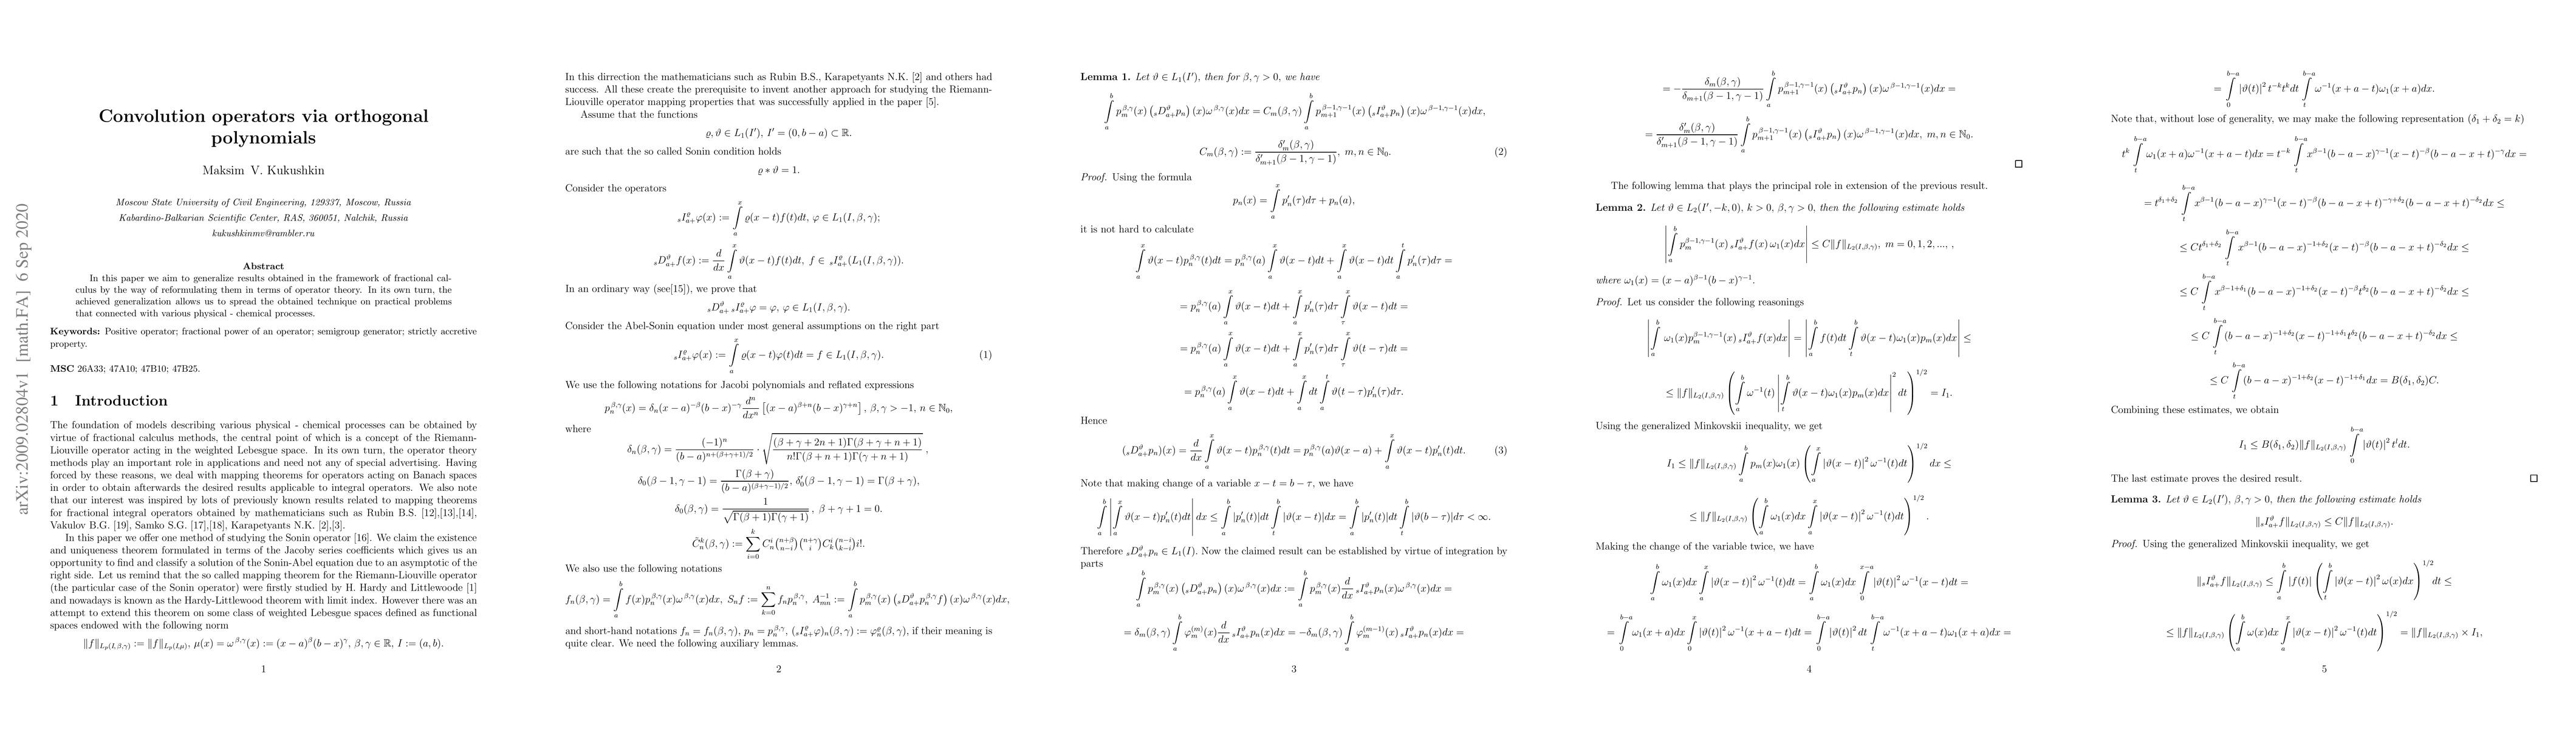 arXiv:2009.02804v1 [math.FA] 6 Sep 2020
Convolution operators via orthogonal
polynomials
Maksim V. Kukushkin
Moscow State University of Civil Engineering, 129337, Moscow, Russia
Kabardino-Balkarian Scientific Center, RAS, 360051, Nalchik, Russia
kukushkinmv@rambler.ru
Abstract
In this paper we aim to generalize results obtained in the framework of fractional cal-
culus by the way of reformulating them in terms of operator theory. In its own turn, the
achieved generalization allows us to spread the obtained technique on practical problems
that connected with various physical - chemical processes.
Keywords: Positive operator; fractional power of an operator; semigroup generator; strictly accretive
property.
MSC 26A33; 47A10; 47B10; 47B25.
1 Introduction
The foundation of models describing various physical - chemical processes can be obtained by
virtue of fractional calculus methods, the central point of which is a concept of the Riemann-
Liouville operator acting in the weighted Lebesgue space. In its own turn, the operator theory
methods play an important role in applications and need not any of special advertising. Having
forced by these reasons, we deal with mapping theorems for operators acting on Banach spaces
in order to obtain afterwards the desired results applicable to integral operators. We also note
that our interest was inspired by lots of previously known results related to mapping theorems
for fractional integral operators obtained by mathematicians such as Rubin B.S. [12],[13],[14],
Vakulov B.G. [19], Samko S.G. [17],[18], Karapetyants N.K. [2],[3].
In this paper we offer one method of studying the Sonin operator [16]. We claim the existence
and uniqueness theorem formulated in terms of the Jacoby series coefficients which gives us an
opportunity to find and classify a solution of the Sonin-Abel equation due to an asymptotic of the
right side. Let us remind that the so called mapping theorem for the Riemann-Liouville operator
(the particular case of the Sonin operator) were firstly studied by H. Hardy and Littlewoode [1]
and nowadays is known as the Hardy-Littlewood theorem with limit index. However there was an
attempt to extend this theorem on some class of weighted Lebesgue spaces defined as functional
spaces endowed with the following norm
‖f‖_{L_p(I,β,γ)} := ‖f‖_{L_p(I,μ)}, μ(x) = ω^{β,γ}(x) := (x − a)^β(b − x)^γ, β, γ ∈ ℝ, I := (a, b).
1
In this dirrection the mathematicians such as Rubin B.S., Karapetyants N.K. [2] and others had
success. All these create the prerequisite to invent another approach for studying the Riemann-
Liouville operator mapping properties that was successfully applied in the paper [5].
Assume that the functions
ϱ, ϑ ∈ L_1(I′), I′ = (0, b − a) ⊂ ℝ.
are such that the so called Sonin condition holds
ϱ ∗ ϑ = 1.
Consider the operators
_sI^ϱ_{a+}φ(x) := ∫_a^x ϱ(x − t)f(t)dt, φ ∈ L_1(I, β, γ);
_sD^ϑ_{a+}f(x) := d/dx ∫_a^x ϑ(x − t)f(t)dt, f ∈ _sI^ϱ_{a+}(L_1(I, β, γ)).
In an ordinary way (see[15]), we prove that
_sD^ϑ_{a+} _sI^ϱ_{a+}φ = φ, φ ∈ L_1(I, β, γ).
Consider the Abel-Sonin equation under most general assumptions on the right part
_sI^ϱ_{a+}φ(x) := ∫_a^x ϱ(x − t)φ(t)dt = f ∈ L_1(I, β, γ). (1)
We use the following notations for Jacobi polynomials and reflated expressions
p_n^{β,γ}(x) = δ_n(x − a)^{−β}(b − x)^{−γ} d^n/dx^n [(x − a)^{β+n}(b − x)^{γ+n}], β, γ > −1, n ∈ ℕ_0,
where
δ_n(β, γ) = (−1)^n/(b − a)^{n+(β+γ+1)/2} · √((β + γ + 2n + 1)Γ(β + γ + n + 1)/(n!Γ(β + n + 1)Γ(γ + n + 1))),
δ_0(β − 1, γ − 1) = Γ(β + γ)/(b − a)^{(β+γ−1)/2}, δ′_0(β − 1, γ − 1) = Γ(β + γ),
δ_0(β, γ) = 1/√(Γ(β + 1)Γ(γ + 1)), β + γ + 1 = 0.
C̃_n^k(β, γ) := ∑_{i=0}^k C_n^i (n+β choose n−i)(n+γ choose i) C_k^i (n−i choose k−i) i!.
We also use the following notations
f_n(β, γ) = ∫_a^b f(x)p_n^{β,γ}(x)ω^{β,γ}(x)dx, S_nf := ∑_{k=0}^n f_np_n^{β,γ}, A_{mn}^{−1} := ∫_a^b p_m^{β,γ}(x) (_sD^ϑ_{a+}p_n^{β,γ}f) (x)ω^{β,γ}(x)dx,
and short-hand notations f_n = f_n(β, γ), p_n = p_n^{β,γ}, (_sI^ϱ_{a+}φ)_n(β, γ) := φ_n^ϱ(β, γ), if their meaning is
quite clear. We need the following auxiliary lemmas.
2
Lemma 1. Let ϑ ∈ L_1(I′), then for β, γ > 0, we have
∫_a^b p_m^{β,γ}(x) (_sD^ϑ_{a+}p_n) (x)ω^{β,γ}(x)dx = C_m(β, γ) ∫_a^b p_{m+1}^{β−1,γ−1}(x) (_sI^ϑ_{a+}p_n) (x)ω^{β−1,γ−1}(x)dx,
C_m(β, γ) := δ′_m(β, γ)/δ′_{m+1}(β − 1, γ − 1), m, n ∈ ℕ_0. (2)
Proof. Using the formula
p_n(x) = ∫_a^x p′_n(τ)dτ + p_n(a),
it is not hard to calculate
∫_a^x ϑ(x − t)p_n^{β,γ}(t)dt = p_n^{β,γ}(a) ∫_a^x ϑ(x − t)dt + ∫_a^x ϑ(x − t)dt ∫_a^t p′_n(τ)dτ =
= p_n^{β,γ}(a) ∫_a^x ϑ(x − t)dt + ∫_a^x p′_n(τ)dτ ∫_τ^x ϑ(x − t)dt =
= p_n^{β,γ}(a) ∫_a^x ϑ(x − t)dt + ∫_a^x p′_n(τ)dτ ∫_τ^x ϑ(t − τ)dt =
= p_n^{β,γ}(a) ∫_a^x ϑ(x − t)dt + ∫_a^x dt ∫_a^t ϑ(t − τ)p′_n(τ)dτ.
Hence
(_sD^ϑ_{a+}p_n)(x) = d/dx ∫_a^x ϑ(x − t)p_n^{β,γ}(t)dt = p_n^{β,γ}(a)ϑ(x − a) + ∫_a^x ϑ(x − t)p′_n(t)dt. (3)
Note that making change of a variable x − t = b − τ, we have
∫_a^b |∫_a^x ϑ(x − t)p′_n(t)dt| dx ≤ ∫_a^b |p′_n(t)|dt ∫_t^b |ϑ(x − t)|dx = ∫_a^b |p′_n(t)|dt ∫_t^b |ϑ(b − τ)|dτ < ∞.
Therefore _sD^ϑ_{a+}p_n ∈ L_1(I). Now the claimed result can be established by virtue of integration by
parts
∫_a^b p_m^{β,γ}(x) (_sD^ϑ_{a+}p_n) (x)ω^{β,γ}(x)dx := ∫_a^b p_m^{β,γ}(x) d/dx _sI^ϑ_{a+}p_n(x)ω^{β,γ}(x)dx =
= δ_m(β, γ) ∫_a^b φ_m^{(m)}(x) d/dx _sI^ϑ_{a+}p_n(x)dx = −δ_m(β, γ) ∫_a^b φ_m^{(m−1)}(x) _sI^ϑ_{a+}p_n(x)dx =
3
= − δ_m(β, γ)/δ_{m+1}(β − 1, γ − 1) ∫_a^b p_{m+1}^{β−1,γ−1}(x) (_sI^ϑ_{a+}p_n) (x)ω^{β−1,γ−1}(x)dx =
= δ′_m(β, γ)/δ′_{m+1}(β − 1, γ − 1) ∫_a^b p_{m+1}^{β−1,γ−1}(x) (_sI^ϑ_{a+}p_n) (x)ω^{β−1,γ−1}(x)dx, m, n ∈ ℕ_0.
□
The following lemma that plays the principal role in extension of the previous result.
Lemma 2. Let ϑ ∈ L_2(I′, −k, 0), k > 0, β, γ > 0, then the following estimate holds
|∫_a^b p_m^{β−1,γ−1}(x) _sI^ϑ_{a+}f(x) ω_1(x)dx| ≤ C‖f‖_{L_2(I,β,γ)}, m = 0, 1, 2, ..., ,
where ω_1(x) = (x − a)^{β−1}(b − x)^{γ−1}.
Proof. Let us consider the following reasonings
|∫_a^b ω_1(x)p_m^{β−1,γ−1}(x) _sI^ϑ_{a+}f(x)dx| = |∫_a^b f(t)dt ∫_t^b ϑ(x − t)ω_1(x)p_m(x)dx| ≤
≤ ‖f‖_{L_2(I,β,γ)} (∫_a^b ω^{−1}(t) |∫_t^b ϑ(x − t)ω_1(x)p_m(x)dx|^2 dt)^{1/2} = I_1.
Using the generalized Minkovskii inequality, we get
I_1 ≤ ‖f‖_{L_2(I,β,γ)} ∫_a^b p_m(x)ω_1(x) (∫_a^x |ϑ(x − t)|^2 ω^{−1}(t)dt)^{1/2} dx ≤
≤ ‖f‖_{L_2(I,β,γ)} (∫_a^b ω_1(x)dx ∫_a^x |ϑ(x − t)|^2 ω^{−1}(t)dt)^{1/2}.
Making the change of the variable twice, we have
∫_a^b ω_1(x)dx ∫_a^x |ϑ(x − t)|^2 ω^{−1}(t)dt = ∫_a^b ω_1(x)dx ∫_0^{x−a} |ϑ(t)|^2 ω^{−1}(x − t)dt =
= ∫_0^{b−a} ω_1(x + a)dx ∫_0^x |ϑ(t)|^2 ω^{−1}(x + a − t)dt = ∫_0^{b−a} |ϑ(t)|^2 dt ∫_t^{b−a} ω^{−1}(x + a − t)ω_1(x + a)dx =
4
= ∫_0^{b−a} |ϑ(t)|^2 t^{−k}t^kdt ∫_t^{b−a} ω^{−1}(x + a − t)ω_1(x + a)dx.
Note that, without lose of generality, we may make the following representation (δ_1 + δ_2 = k)
t^k ∫_t^{b−a} ω_1(x + a)ω^{−1}(x + a − t)dx = t^{−k} ∫_t^{b−a} x^{β−1}(b − a − x)^{γ−1}(x − t)^{−β}(b − a − x + t)^{−γ}dx =
= t^{δ_1+δ_2} ∫_t^{b−a} x^{β−1}(b − a − x)^{γ−1}(x − t)^{−β}(b − a − x + t)^{−γ+δ_2}(b − a − x + t)^{−δ_2}dx ≤
≤ Ct^{δ_1+δ_2} ∫_t^{b−a} x^{β−1}(b − a − x)^{−1+δ_2}(x − t)^{−β}(b − a − x + t)^{−δ_2}dx ≤
≤ C ∫_t^{b−a} x^{β−1+δ_1}(b − a − x)^{−1+δ_2}(x − t)^{−β}t^{δ_2}(b − a − x + t)^{−δ_2}dx ≤
≤ C ∫_t^{b−a} (b − a − x)^{−1+δ_2}(x − t)^{−1+δ_1}t^{δ_2}(b − a − x + t)^{−δ_2}dx ≤
≤ C ∫_t^{b−a} (b − a − x)^{−1+δ_2}(x − t)^{−1+δ_1}dx = B(δ_1, δ_2)C.
Combining these estimates, we obtain
I_1 ≤ B(δ_1, δ_2)‖f‖_{L_2(I,β,γ)} ∫_0^{b−a} |ϑ(t)|^2 t^l dt.
The last estimate proves the desired result.
□
Lemma 3. Let ϑ ∈ L_2(I′), β, γ > 0, then the following estimate holds
‖_sI^ϑ_{a+}f‖_{L_2(I,β,γ)} ≤ C‖f‖_{L_2(I,β,γ)}.
Proof. Using the generalized Minkovskii inequality, we get
‖_sI^ϑ_{a+}f‖_{L_2(I,β,γ)} ≤ ∫_a^b |f(t)| (∫_t^b |ϑ(x − t)|^2 ω(x)dx)^{1/2} dt ≤
≤ ‖f‖_{L_2(I,β,γ)} (∫_a^b ω(x)dx ∫_a^x |ϑ(x − t)|^2 ω^{−1}(t)dt)^{1/2} = ‖f‖_{L_2(I,β,γ)} × I_1,
5